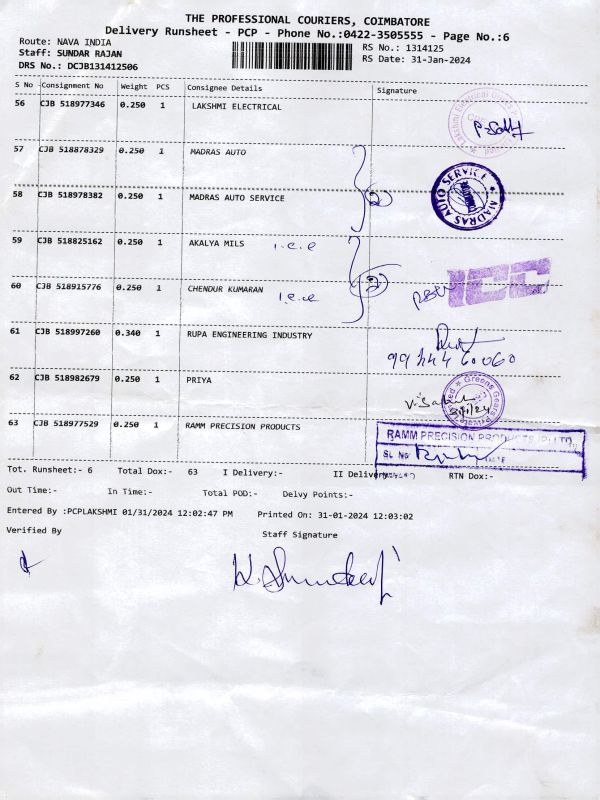 THE PROFESSIONAL COURIERS, COIMBATORE
Delivery Runsheet - PCP - Phone No.:0422-3505555 - Page No.:6
Route: NAVA INDIA
RS No.: 1314125
Staff: SUNDAR RAJAN
RS Date: 31-Jan-2024
DRS No.: DCJB131412506
S No Consignment No Weight PCS Consignee Details Signature
56 CJB 518977346 0.250 1 LAKSHMI ELECTRICAL
57 CJB 518878329 0.250 1 MADRAS AUTO
58 CJB 518978382 0.250 1 MADRAS AUTO SERVICE 2
MADRAS AUTO SERVICE
59 CJB 518825162 0.250 1 AKALYA MILS i.c.c
60 CJB 518915776 0.250 1 CHENDUR KUMARAN i.c.c 2
ICC
61 CJB 518997260 0.340 1 RUPA ENGINEERING INDUSTRY
99444 60060
62 CJB 518982679 0.250 1 PRIYA
63 CJB 518977529 0.250 1 RAMM PRECISION PRODUCTS
RAMM PRECISION PRODUCTS (P) LTD.
SL NO DATE
Tot. Runsheet:- 6 Total Dox:- 63 I Delivery:- II Delivery:- RTN Dox:-
Out Time:- In Time:- Total POD:- Delvy Points:-
Entered By :PCPLAKSHMI 01/31/2024 12:02:47 PM Printed On: 31-01-2024 12:03:02
Verified By Staff Signature